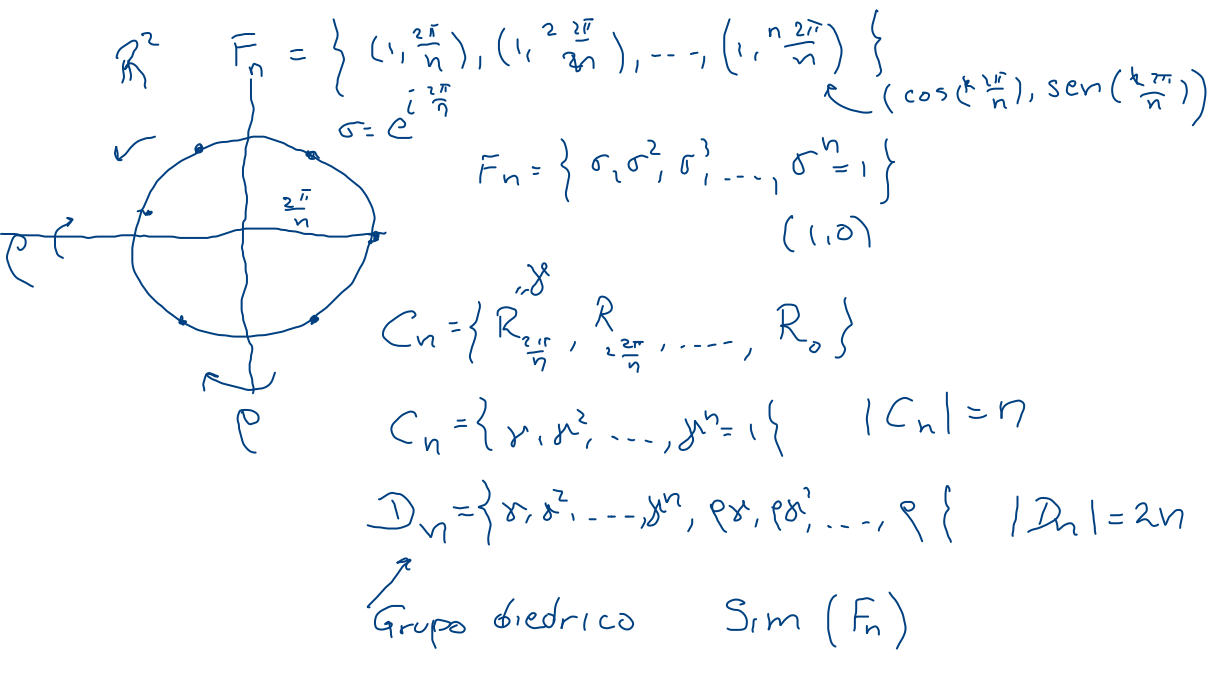 ℝ² Fₙ = { (1, 2π/n), (1, 2 2π/n), ---, (1, n 2π/n) }
(cos(k 2π/n), sen(k 2π/n))
σ = e^{i 2π/n}
Fₙ = { σ, σ², σ³, ---, σⁿ = 1 }
2π/n
(1,0)
ρ
"γ
Cₙ = { R_{2π/n}, R_{2 2π/n}, ----, R₀ }
ρ
Cₙ = { γ, γ², ---, γⁿ = 1 } |Cₙ| = n
Dₙ = { γ, γ², ----, γⁿ, ργ, ργ², ----, ρ } |Dₙ| = 2n
Grupo diedrico Sim (Fₙ)